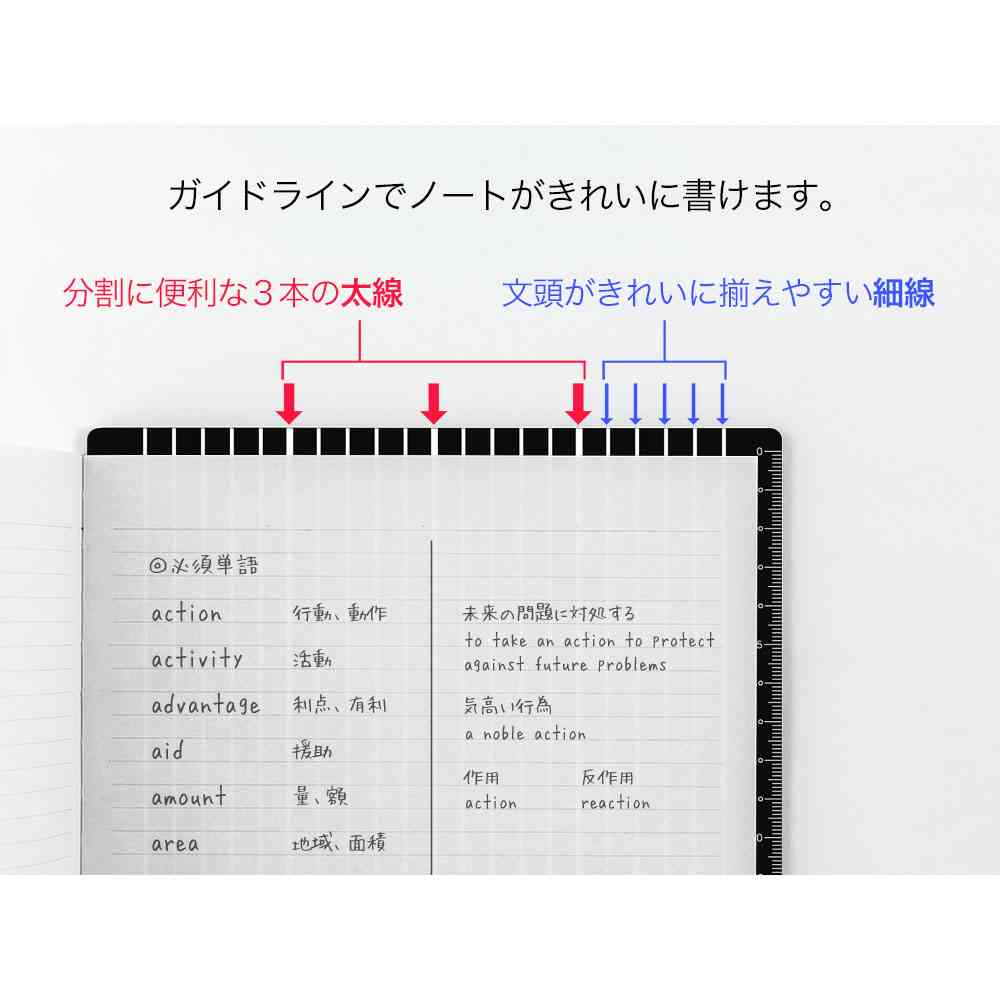 ガイドラインでノートがきれいに書けます。
分割に便利な３本の太線
文頭がきれいに揃えやすい細線
◎必須単語
action 行動、動作
activity 活動
advantage 利点、有利
aid 援助
amount 量、額
area 地域、面積
未来の問題に対処する
to take an action to protect
against future problems
気高い行為
a noble action
作用 反作用
action reaction
0
5